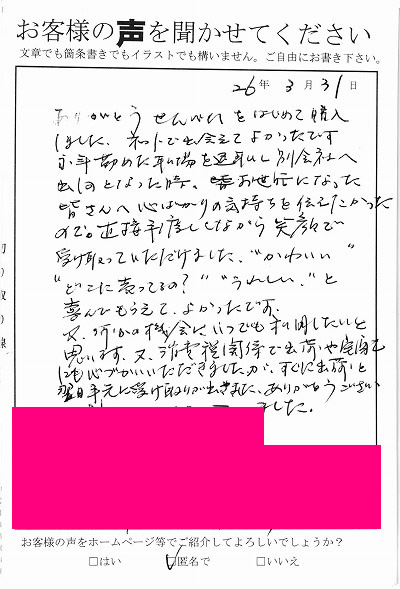 お客様の声を聞かせてください
文章でも箇条書きでもイラストでも構いません。ご自由にお書き下さい。
26年 3月 31日
ありがとうせんべいをはじめて購入
しました。ネットで出会えてよかったです
永年勤めた職場を退職し別会社へ
出向となった時、お世話になった
皆さんへ心ばかりの気持ちを伝えたかった
ので。直接手渡ししながら笑顔で
受け取っていただけました。"かわいい"
"どこに売ってるの?" "うれしい。"と
喜んでもらえて、よかったです。
又、何かの機会にいつでも利用したいと
思います。又、消費税関係で出荷や
にも心づかいいただきましたが、すぐに出荷と
翌日手元に受け取りが出来ました、ありがとうござい
ました。
切り取り線
お客様の声をホームページ等でご紹介してよろしいでしょうか?
□はい □匿名で □いいえ